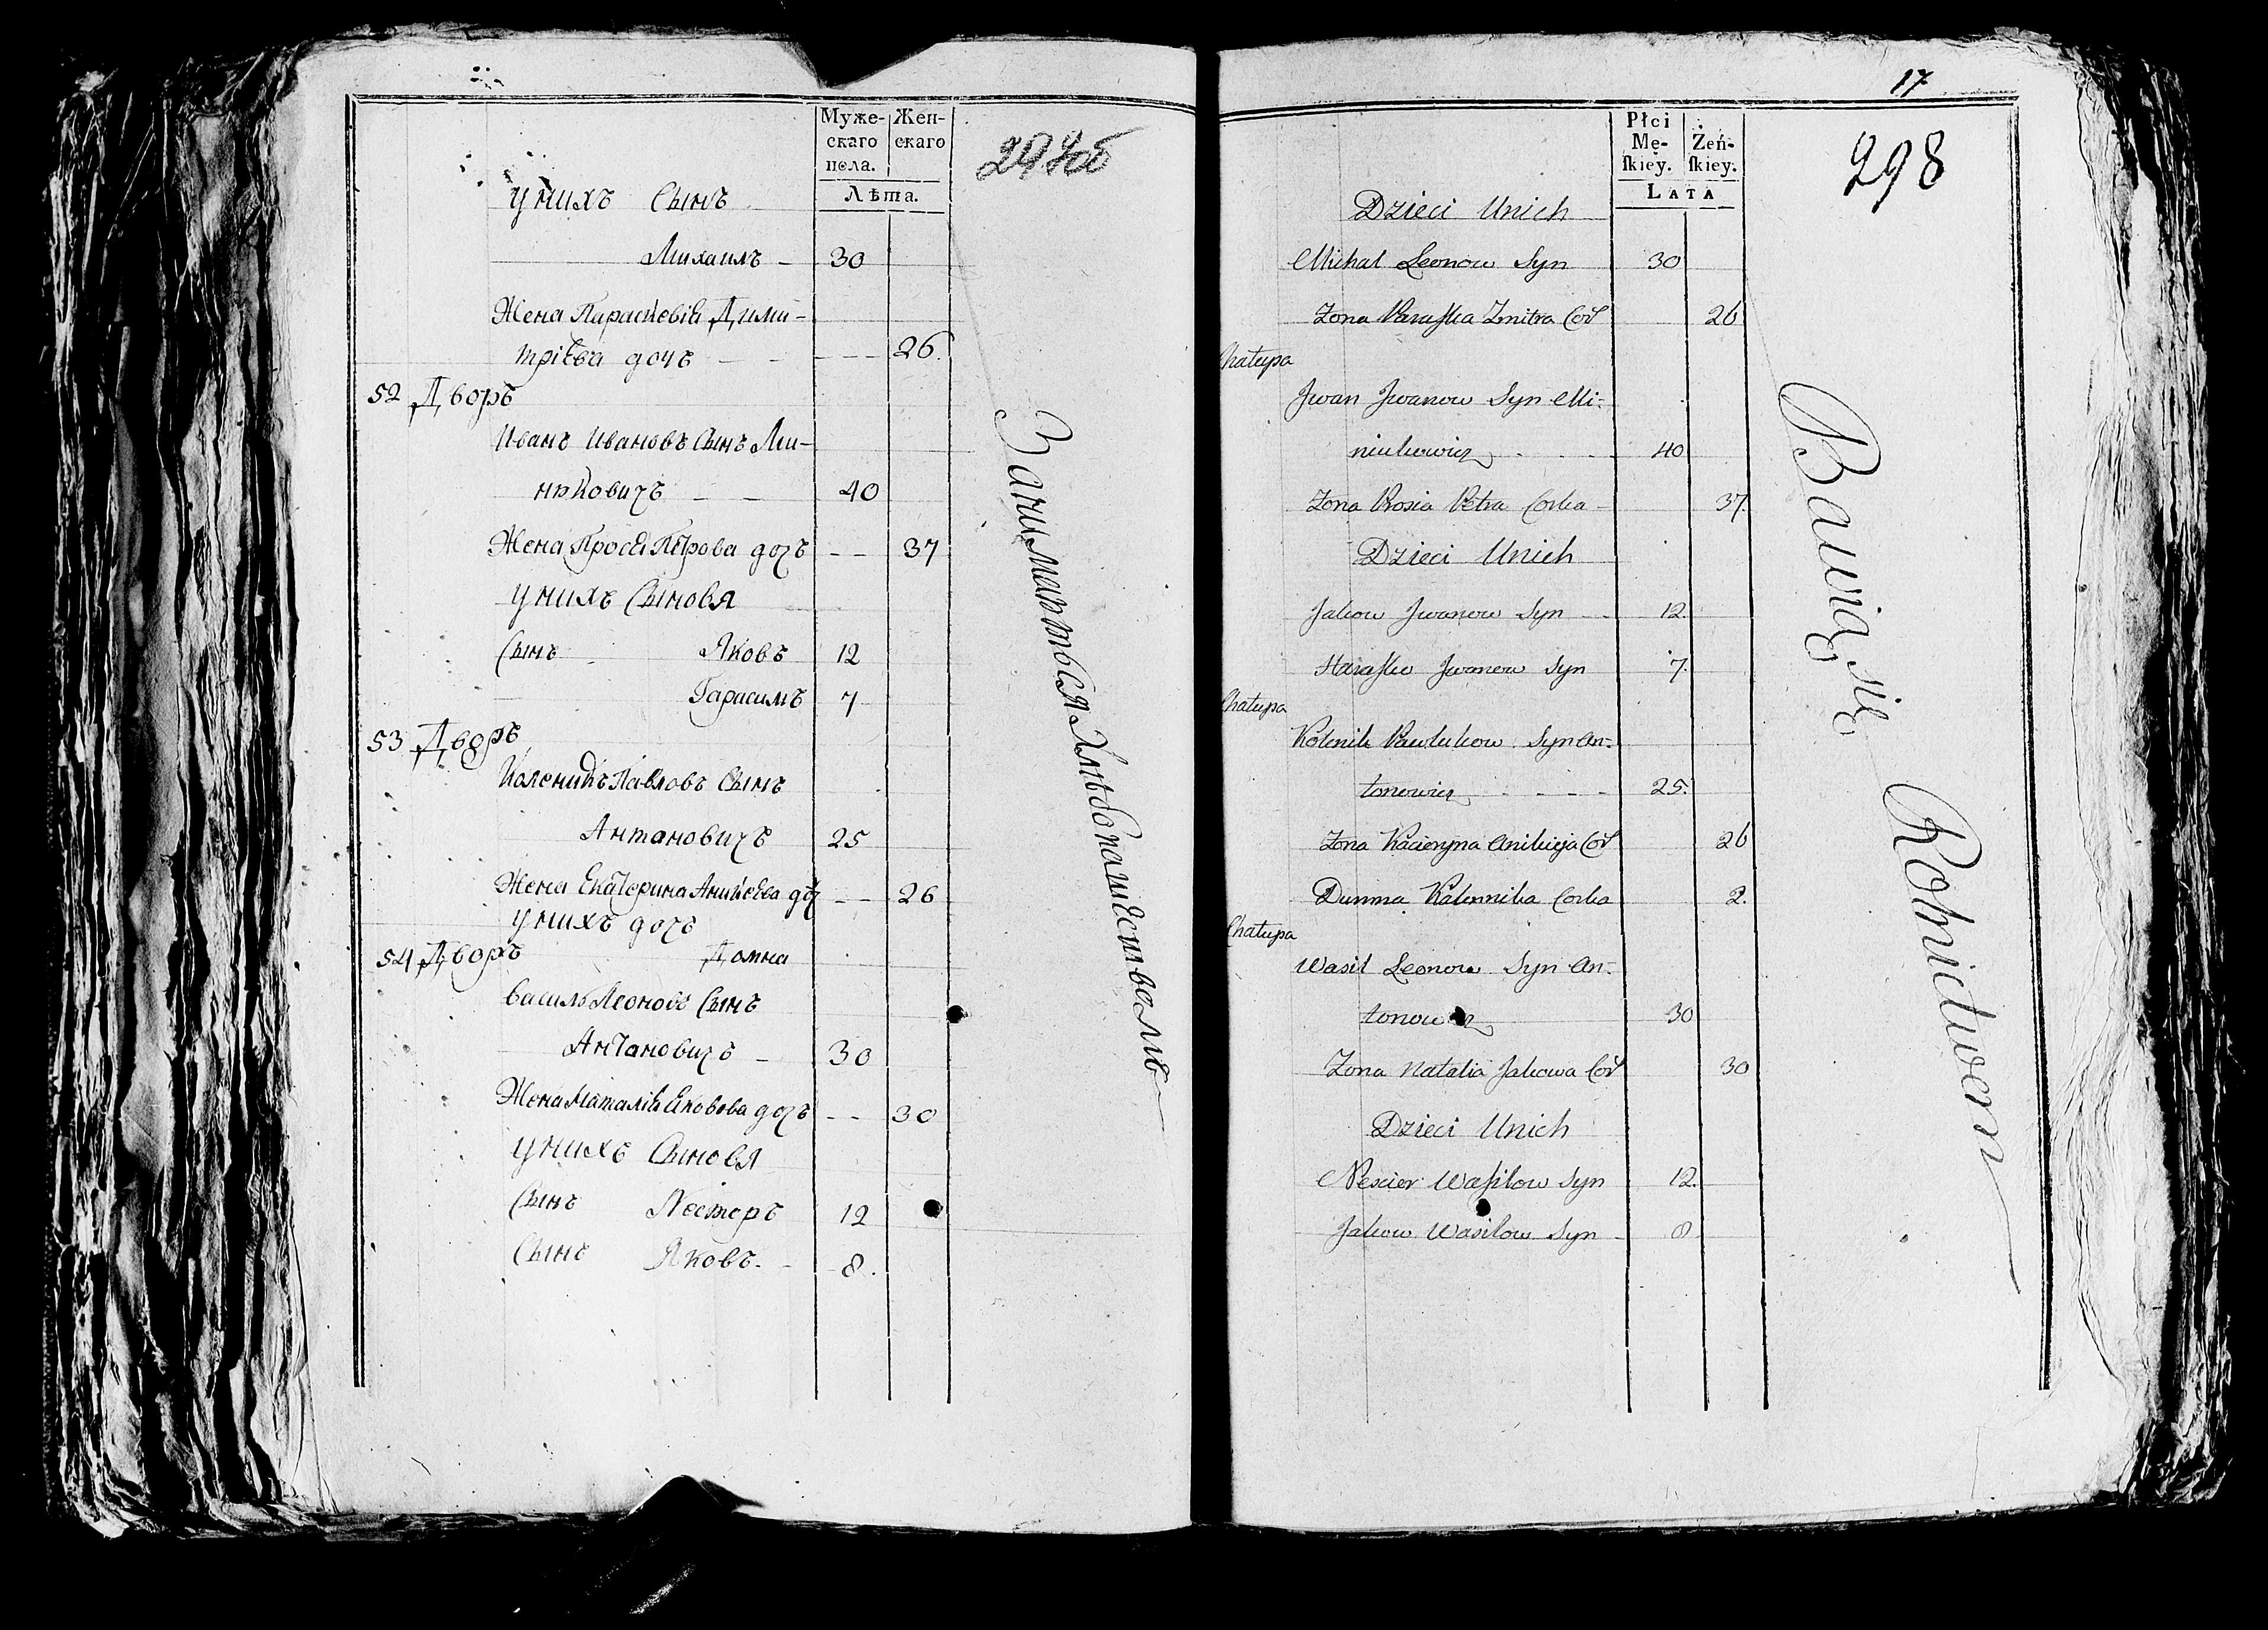 Муже-
скаго
пола.
Жен-
скаго
Лѣта.
297об
У нихъ Сынъ
Михаилъ - 30
Жена Параскевія Дими-
тріева дочь - - - - - 26.
52 Дворъ
Иванъ Ивановъ Сынъ Ми-
нковичъ - - 40
Жена Прося Петрова дочь - - 37
У нихъ Сыновя
Сынъ Яковъ 12
Гарасимъ 7
53 Дворъ
Коленикъ Павловъ Сынъ
Антановичъ 25
Жена Екатерина Аникеева доч - - 26
У нихъ дочь
Домна
54 Дворъ
Василь Леоновъ Сынъ
Антановичъ - 30
Жена Наталія Яковова дочь - - 30
У нихъ Сыновя
Сынъ Нестеръ 12
Сынъ Яковъ. - 8.
Занимаютъся Хлебопашествомъ
17
Płci
Mę-
ſkiey.
Żeń-
ſkiey.
LATA
298
Dzieci Unich
Michał Leonow Syn 30
Zona Paraſka Zmitra Cor 26
Chałupa
Jwan Jwanow Syn Mi-
niukowicz - - - - 40
Zona Prosia Petra Corka - 37.
Dzieci Unich
Jakow Jwanow Syn - - 12.
Haraſko Jwanow Syn 7.
Chałupa
Kolenik Pawlukow Syn An-
tonowicz - - - - 25.
Zona Kacieryna Anikieja Cor 26
Dumna Kalennika Corka 2.
Chałupa
Wasil Leonow Syn An-
tonowicz 30
Zona Natalia Jakowa Cor 30
Dzieci Unich
Nescier Waſilow Syn 12.
Jakow Wasilow Syn - 8
Bawią się Rolnictwem